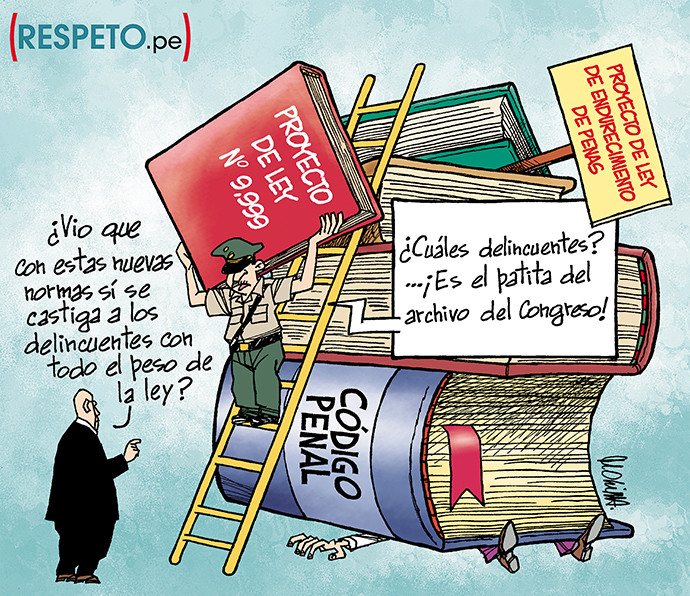 (RESPETO.pe)
PROYECTO DE LEY
DE ENDIRECIMIENTO
DE PENAS
PROYECTO
DE LEY
Nº 9,999
¿Vio que
con estas nuevas
normas sí se
castiga a los
delincuentes con
todo el peso de
la ley?
¿Cuáles delincuentes?
...¡Es el patita del
archivo del Congreso!
CÓDIGO
PENAL